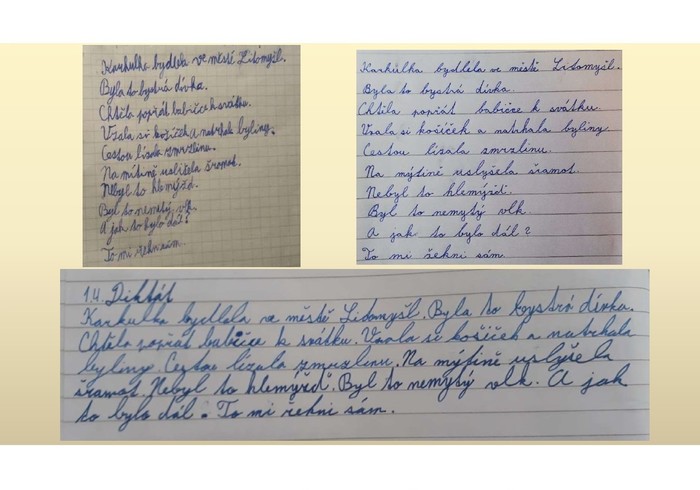 Karkulka bydlela ve městě Litomyšl.
Byla to bystrá dívka.
Chtěla popřát babičce k svátku.
Vzala si košíček a natrhala byliny.
Cestou lízala zmrzlinu.
Na mítině uslišela šramot.
Nebyl to hlemýžď.
Byl to nemytý vlk.
A jak to bylo dál?
To mi řekni sám.
Karkulka bydlela ve městě Litomyšl.
Byla to bystrá dívka.
Chtěla popřát babičce k svátku.
Vzala si košíček a natrhala byliny.
Cestou lízala zmrzlinu.
Na mýtině uslyšela šramot.
Nebyl to hlemýžď.
Byl to nemytý vlk.
A jak to bylo dál?
To mi řekni sám.
1.4. Diktát
Karkulka bydlela ve městě Litomyšl. Byla to bystrá dívka.
Chtěla popřát babičce k svátku. Vzala si košíček a natrhala
byliny. Cestou lízala zmrzlinu. Na mýtině uslyšela
šramot. Nebyl to hlemýžď. Byl to nemytý vlk. A jak
to bylo dál. To mi řekni sám.